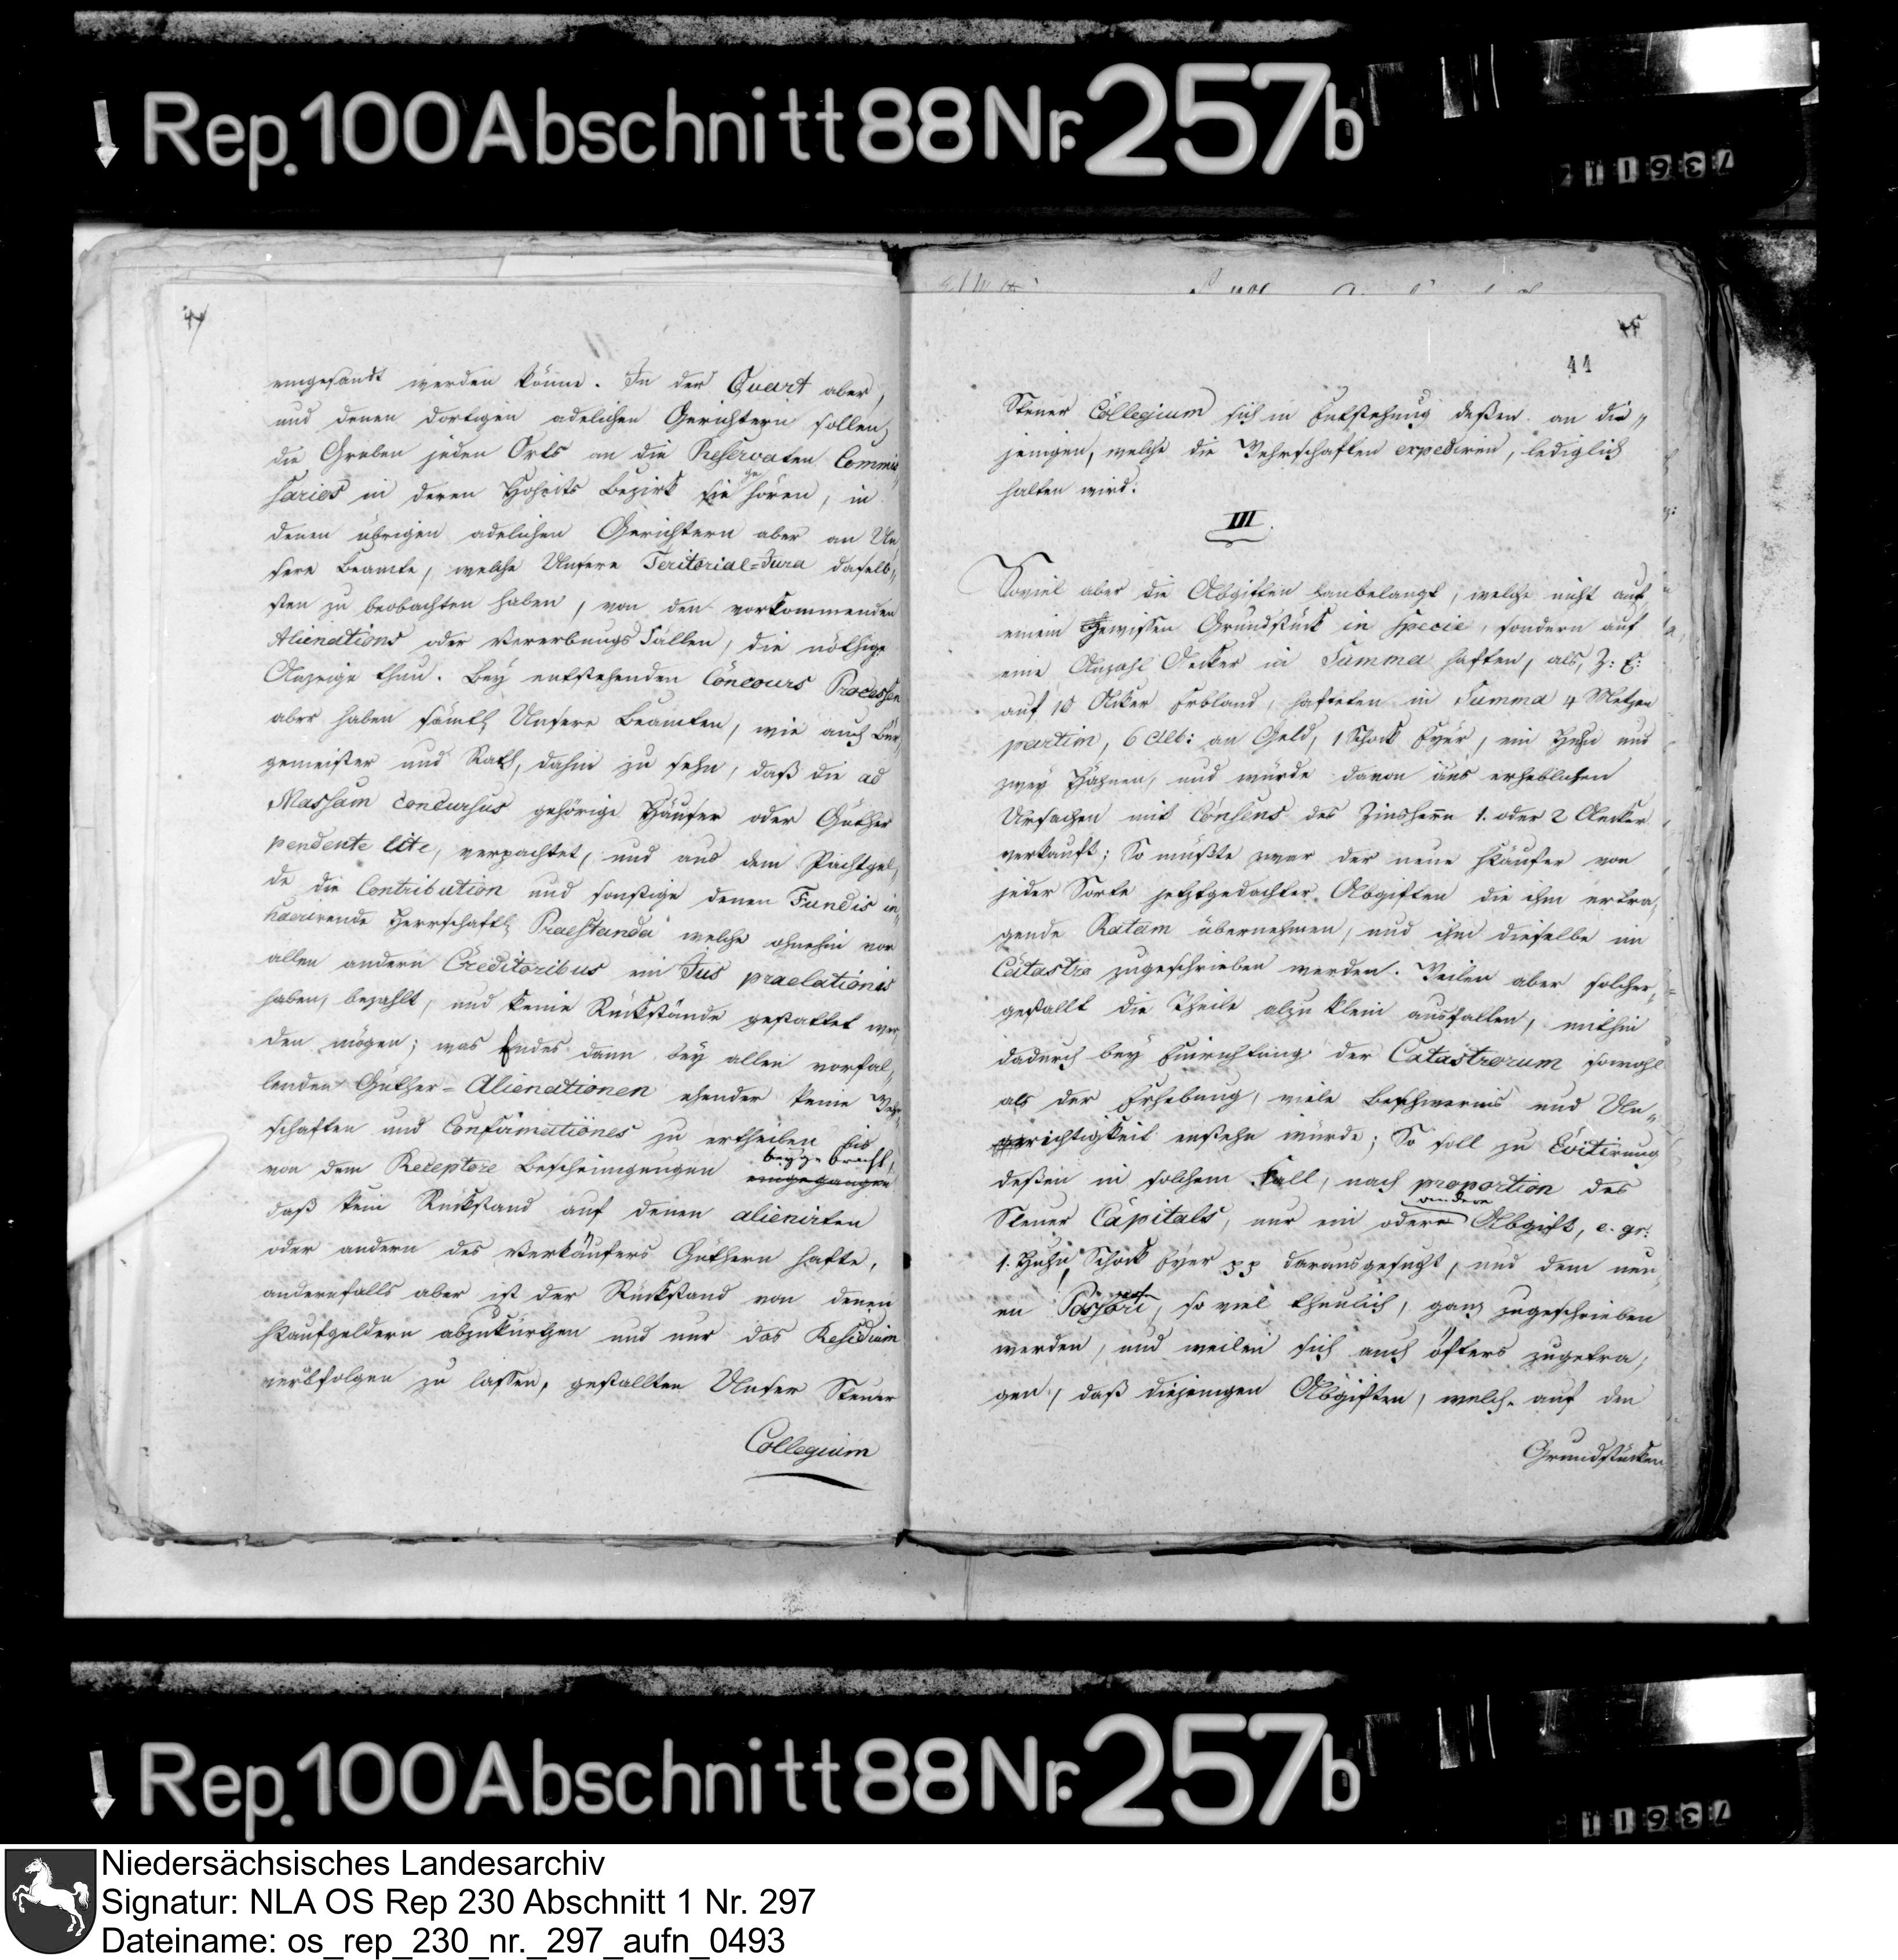 Rep. 100 Abschnitt 88 Nr. 257b
44
eingesandt werden könne. In der Quart aber,
und denen dortigen adelichen Gerichtern sollen,
die Greben jeden Orts an die Reservaten Commis
sarios in deren Hoheits Bezirk sie gehören, in
denen übrigen adelichen Gerichtern aber an Un
sere Beamte, welche Unsere Teritorial=Jura daselb,,
sten zu beobachten haben, von den vorkommenden
Alienations oder Vererbungs Fällen, die nöthige
Anzeige thun. Bey entstehenden Concours Processen
aber haben sämtl. Unsere Beamten, wie auch Bür,
gemeister und Rath, dahin zu sehn, daß die ad
Massam concursus gehörige Häuser oder Güther
pendente lite, verpachtet, und aus dem Pachtgel,
de die Contribution und sonstige denen Fundis in,,
haerirende Herrschaftl. Praestanda welche ohnehin vor
allen andern Creditoribus ein Jus praelationis
haben, bezahlt, und keine Rückstände gestattet wer
den mögen; was Endes dann bey allen vorfal,
lenden Güther=Alienationen ehender keine Wehr-
schaften und Confirmationes zu ertheilen bis
von dem Receptore Bescheinigungen beygebracht,
eingegangen
daß kein Rückstand auf denen alienirten
oder andern des Verkäufers Güthern hafte,
andernfalls aber ist der Rückstand von denen
Kaufgeldern abzukürtzen und nur das Residuum
verabfolgen zu lassen, gestallten Unser Steuer
Collegium
45
44
Steuer Collegium sich in Entstehung deßen an die,,
jenigen, welche die Wehrschaften expediren, lediglich
halten wird.
III.
Soviel aber die Abgiften anbelangt, welche nicht auf
einem Gewissen Grundstück in specie, sondern auf
eine Anzahl Aecker in Summa haften, als, Z: E:
auf 10 Acker Erbland, hafteten in Summa 4 Metzen
partim, 6 alb: an Geld, 1 Schock Eyer, ein Huhn und
zwey Hahnen, und würde davon aus erheblichen
Ursachen mit Consens des Zinsherrn 1. oder 2 Aecker
verkauft; So müßte zwar der neue Käufer von
jeder Sorte jetztgedachter Abgiften die ihn ertra,
gende Ratam übernehmen, und ihm dieselbe im
Catastro zugeschrieben werden. Weilen aber solcher,
gestallt die Theile alzu klein ausfallen, mithin
dadurch bey Einrichtung der Catastrorum sowohl
als der Erhebung, viele Beschwernis und Un,,
richtigkeit enstehn würde; So soll zu Evitirung
deßen in solchem Fall, nach proportion des
Steuer Capitals, nur ein oder andere Abgift, e. gr:
1. Huhn, Schock Eyer pp darausgesucht, und dem neu,
en Possessori, so viel thunlich, ganz zugeschrieben
werden, und weilen sich auch öfters zugetra,
gen, daß diejenigen Abgiften, welche auf den
Grundstücken
Rep. 100 Abschnitt 88 Nr. 257b
Niedersächsisches Landesarchiv
Signatur: NLA OS Rep 230 Abschnitt 1 Nr. 297
Dateiname: os_rep_230_nr._297_aufn_0493